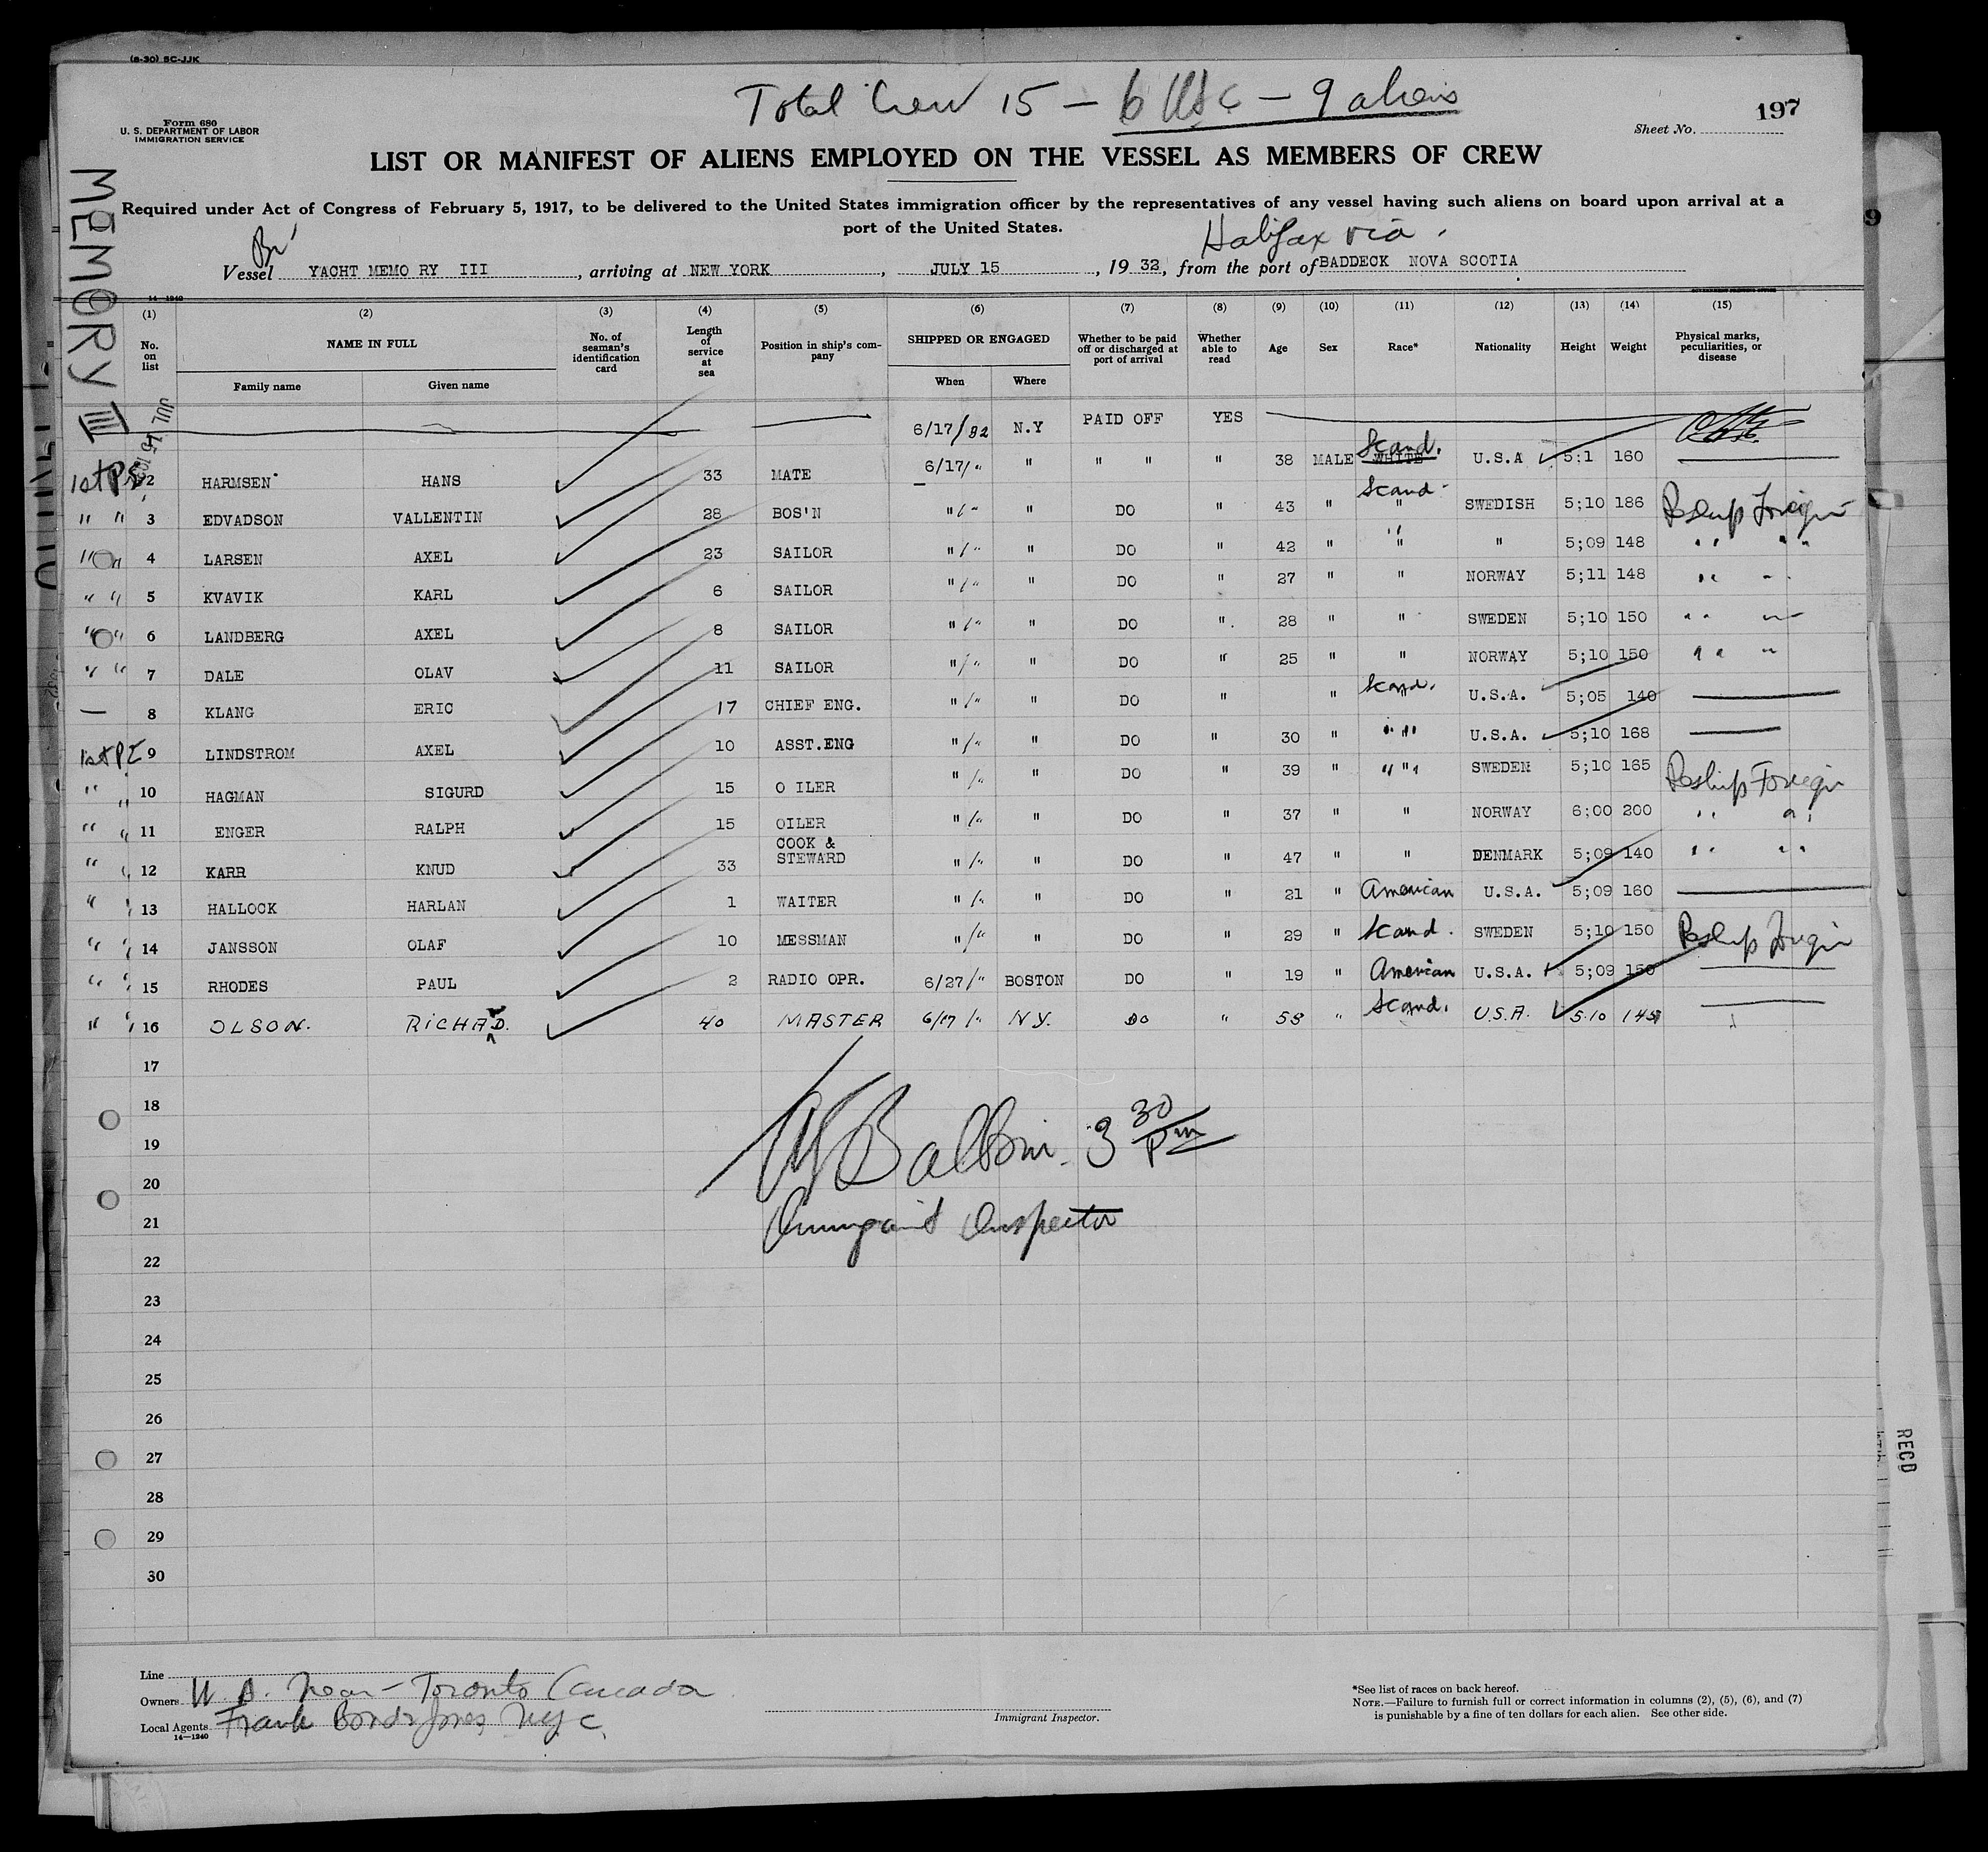 (8-30) SC-JJK
Total Crew 15 — 6 USC — 9 aliens
197
Sheet No.
Form 680
U. S. DEPARTMENT OF LABOR
IMMIGRATION SERVICE
LIST OR MANIFEST OF ALIENS EMPLOYED ON THE VESSEL AS MEMBERS OF CREW
Required under Act of Congress of February 5, 1917, to be delivered to the United States immigration officer by the representatives of any vessel having such aliens on board upon arrival at a
port of the United States.
Br
Halifax via
Vessel YACHT MEMO RY III, arriving at NEW YORK, JULY 15, 1932, from the port of BADDECK NOVA SCOTIA
MEMORY III
14-1240
(1) (2) (3) (4) (5) (6) (7) (8) (9) (10) (11) (12) (13) (14) (15)
No. on list NAME IN FULL No. of seaman's identification card Length of service at sea Position in ship's company SHIPPED OR ENGAGED Whether to be paid off or discharged at port of arrival Whether able to read Age Sex Race* Nationality Height Weight Physical marks, peculiarities, or disease
Family name Given name When Where
6/17/32 N.Y PAID OFF YES
1st PE 2 HARMSEN HANS 33 MATE 6/17/" " " " " 38 MALE WHITE Scand. U.S.A 5;1 160
" " 3 EDVADSON VALLENTIN 28 BOS'N "/" " DO " 43 " " Scand. SWEDISH 5;10 186 Reship Foreign
" " 4 LARSEN AXEL 23 SAILOR "/" " DO " 42 " " " 5;09 148 " "
" " 5 KVAVIK KARL 6 SAILOR "/" " DO " 27 " " NORWAY 5;11 148 " "
" " 6 LANDBERG AXEL 8 SAILOR "/" " DO " 28 " " SWEDEN 5;10 150 " "
" " 7 DALE OLAV 11 SAILOR "/" " DO " 25 " " NORWAY 5;10 150 " "
— 8 KLANG ERIC 17 CHIEF ENG. "/" " DO " " Scand. U.S.A. 5;05 140
1st PE 9 LINDSTROM AXEL 10 ASST.ENG "/" " DO " 30 " " U.S.A. 5;10 168
" " 10 HAGMAN SIGURD 15 O ILER "/" " DO " 39 " " SWEDEN 5;10 165 Reship Foreign
" " 11 ENGER RALPH 15 OILER "/" " DO " 37 " " NORWAY 6;00 200 " "
" " 12 KARR KNUD 33 COOK & STEWARD "/" " DO " 47 " " DENMARK 5;09 140 " "
" " 13 HALLOCK HARLAN 1 WAITER "/" " DO " 21 " American U.S.A. 5;09 160
" " 14 JANSSON OLAF 10 MESSMAN "/" " DO " 29 " Scand. SWEDEN 5;10 150 Reship Foreign
" " 15 RHODES PAUL 2 RADIO OPR. 6/27/" BOSTON DO " 19 " American U.S.A. 5;09 150
" " 16 OLSON. RICHARD. 40 MASTER 6/17/" N.Y. DO " 58 " Scand. U.S.A. 5.10 145
17
18
19
20
21
22
23
24
25
26
27
28
29
30
3 30 Pm
Immigrant Inspector
RECD
Line
Owners Toronto Canada
Local Agents Frank NYC
14-1240
Immigrant Inspector.
*See list of races on back hereof.
NOTE.—Failure to furnish full or correct information in columns (2), (5), (6), and (7)
is punishable by a fine of ten dollars for each alien. See other side.